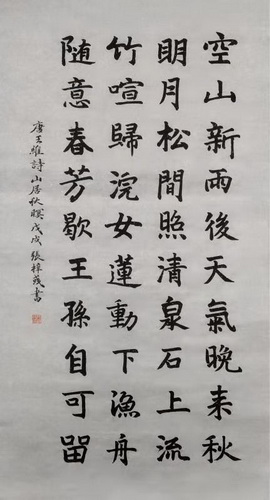 空山新雨後天氣晚来秋
明月松間照清泉石上流
竹喧歸浣女蓮動下漁舟
随意春芳歇王孫自可留
唐王維詩山居秋暝戊戌張梓書